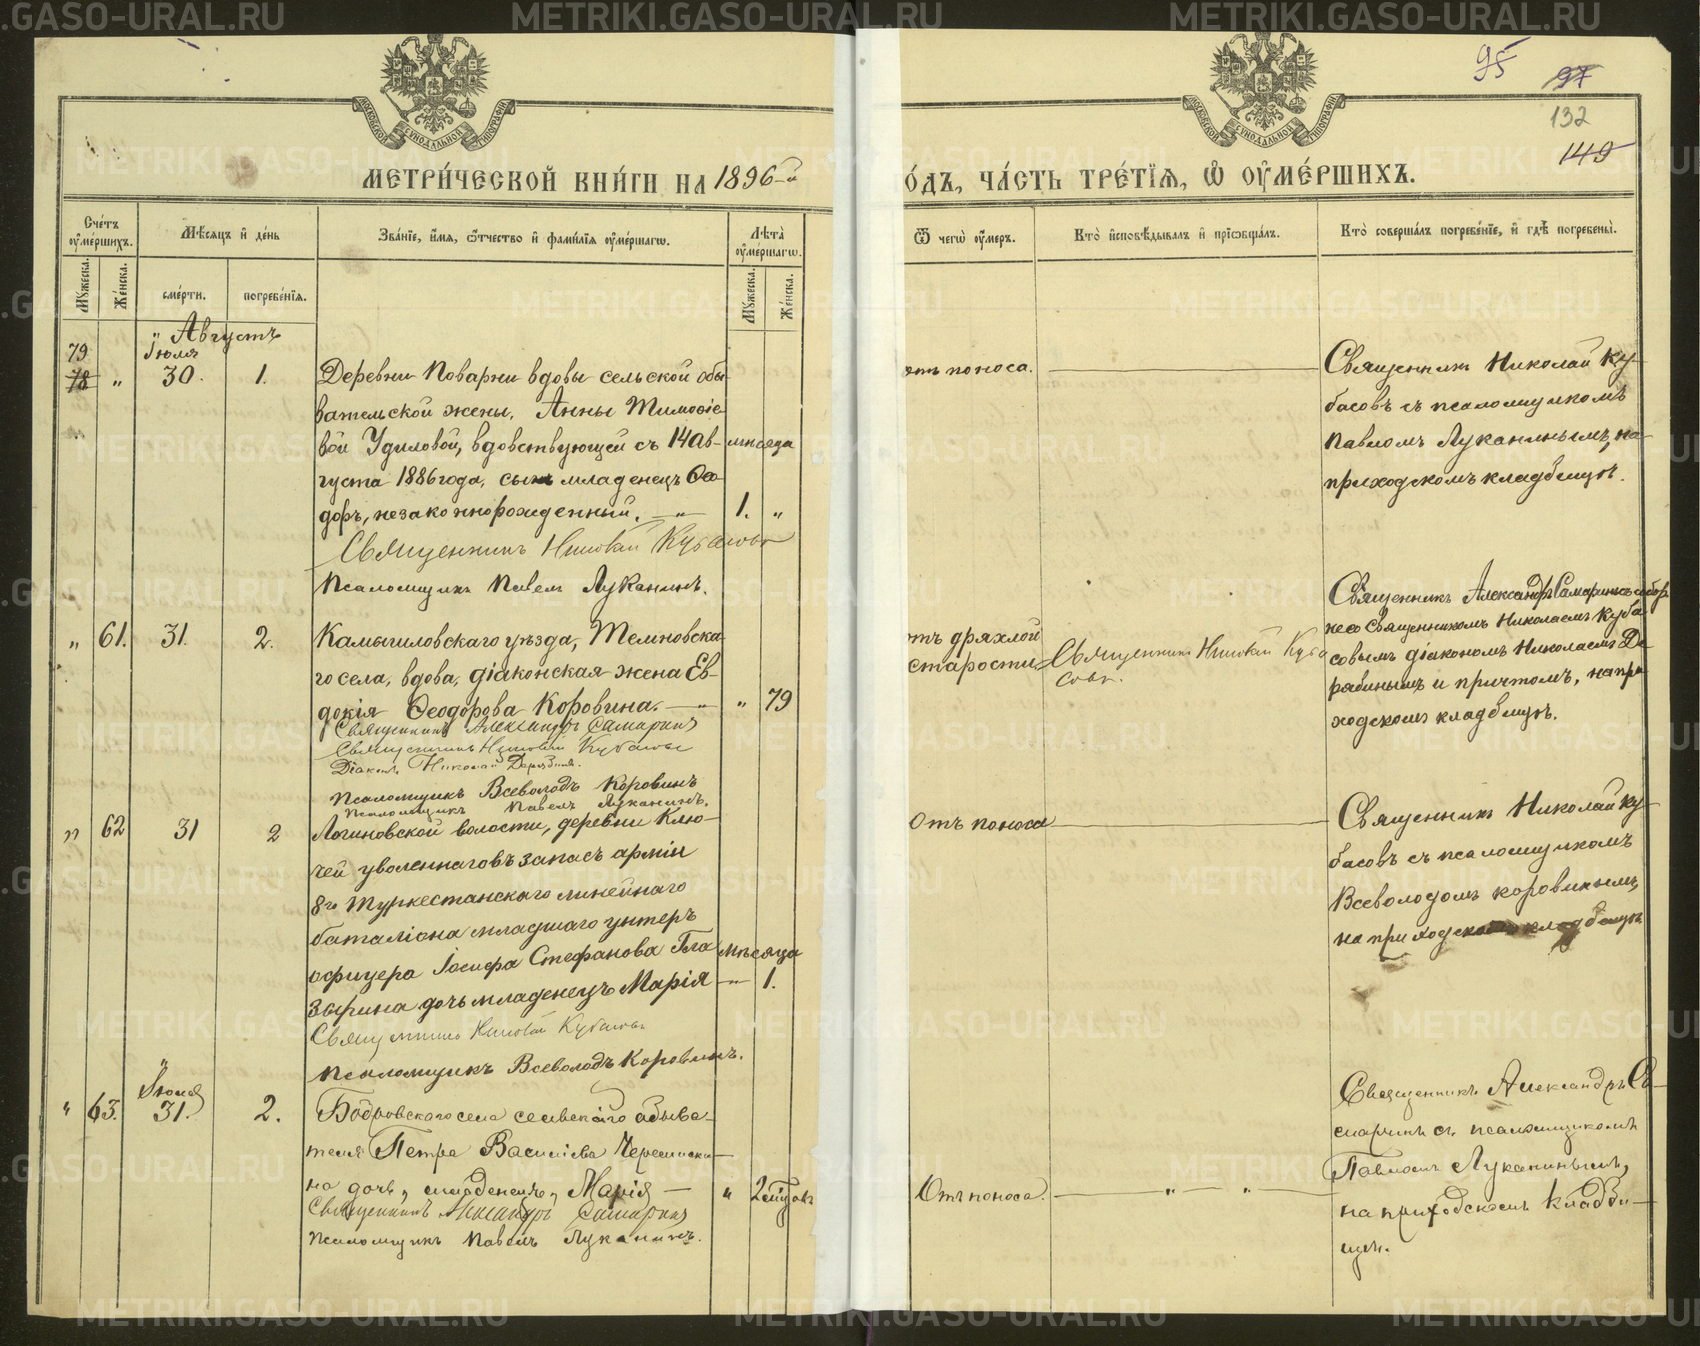 METRIKI.GASO-URAL.RU
95
97
132
149
МОСКОВСКОЙ СѴНОДАЛЬНОЙ ТИПОГРАФІИ
МЕТРИ́ЧЕСКОЙ КНИ́ГИ НА 1896-й
О́ДЪ, ЧА́СТЬ ТРЕ́ТІѦ, Ѡ҆ ОУ҆МЕ́РШИХЪ.
Сче́тъ оу҆ме́ршихъ.
Мꙋжеска.
Же́нска.
Мѣ́сѧцъ и҆ де́нь
сме́рти.
погребе́нїѧ.
Зва́нїе, и҆́мѧ, ѻ҆́тчество и҆ фами́лїѧ оу҆ме́ршагѡ.
Лѣ́та оу҆ме́ршагѡ.
Мꙋжеска.
Же́нска.
Ѿ чегѡ̀ оу҆́меръ.
Кто̀ и҆сповѣ́дывалъ и҆ прїѡбща́лъ.
Кто̀ соверша́лъ погребе́нїе, и҆ гдѣ̀ погребены̀.
" Августъ
79
78 " Іюля 30. 1.
Деревни Поварни вдовы сельской обы-
вательской жены, Анны Тимоѳіе-
вой Удиловой, вдовствующей съ 14 Ав-
густа 1886 года, сынъ младенецъ Ѳео-
доръ, незаконнорожденный. — " —
мѣсяца
1. "
Священникъ Николай Кубасовъ
Псаломщикъ Павелъ Луканинъ.
отъ поноса.
Священникъ Николай Ку-
басовъ съ псаломщикомъ
Павломъ Луканинымъ, на
приходскомъ кладбищѣ.
" 61. 31. 2.
Камышловскаго уѣзда, Темновска-
го села, вдова, діаконская жена Ев-
докія Ѳеодорова Коровина. — " —
" 79
Священникъ Александръ Самаринъ
Священникъ Николай Кубасовъ
Діаконъ Николай Дерябинъ.
Псаломщикъ Всеволодъ Коровинъ
Псаломщикъ Павелъ Луканинъ.
отъ дряхлой
старости
Священникъ Николай Куба
совъ.
Священникъ Александръ Самаринъ съ собор
нѣ со Священникомъ Николаемъ Куба
совымъ діакономъ Николаемъ Де
рябинымъ и причтомъ, на при
ходскомъ кладбищѣ.
" 62 31 2
Логиновской волости, деревни Клю-
чей уволеннаго въ запасъ арміи
8го Туркестанскаго линейнаго
баталіона младшаго унтеръ
офицера Іосифа Стефанова Гла
зырина дочь младенецъ Марія — " —
мѣсяца
1.
Священникъ Николай Кубасовъ
Псаломщикъ Всеволодъ Коровинъ.
Отъ поноса
Священникъ Николай Ку-
басовъ съ псаломщикомъ
Всеволодомъ Коровинымъ,
на приходскомъ кладбищѣ
" 63. Іюля 31. 2.
Бобровскаго села сельскаго обыва-
теля Петра Василіева Черемиски-
на дочь, младенецъ, Марія —
" 2 мѣсяцовъ
Священникъ Александръ Самаринъ
Псаломщикъ Павелъ Луканинъ.
Отъ поноса. — " — " —
Священникъ Александръ Са-
маринъ съ псаломщикомъ
Павломъ Луканинымъ,
на приходскомъ кладби-
щѣ.